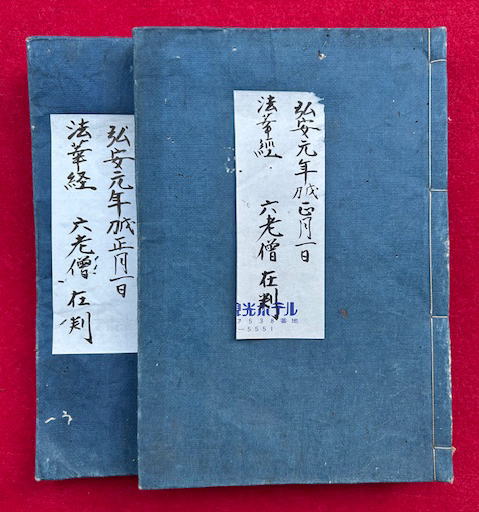 弘安元年 正月一日
法華經 六老僧 在判
観光ホテル
7538番地
-5551
弘安元年 正月一日
法華経 六老僧 在判